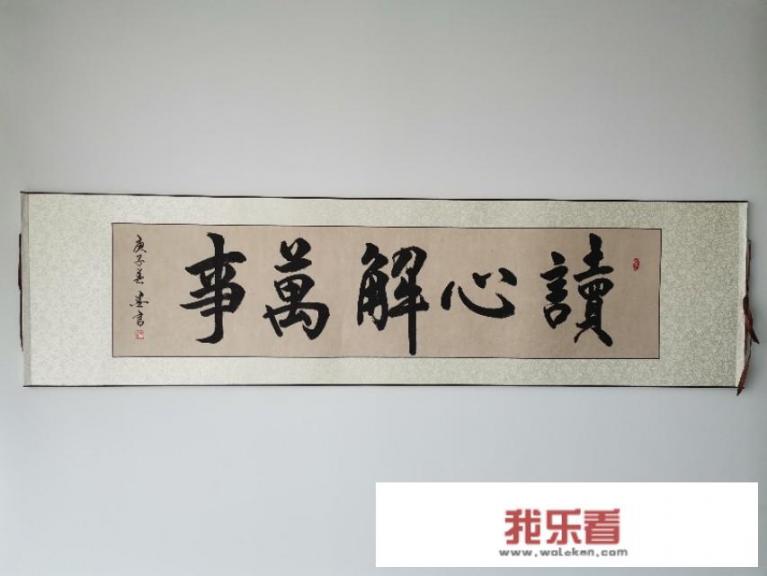 讀心解萬事
庚子春
我乐看
www.woleken.com